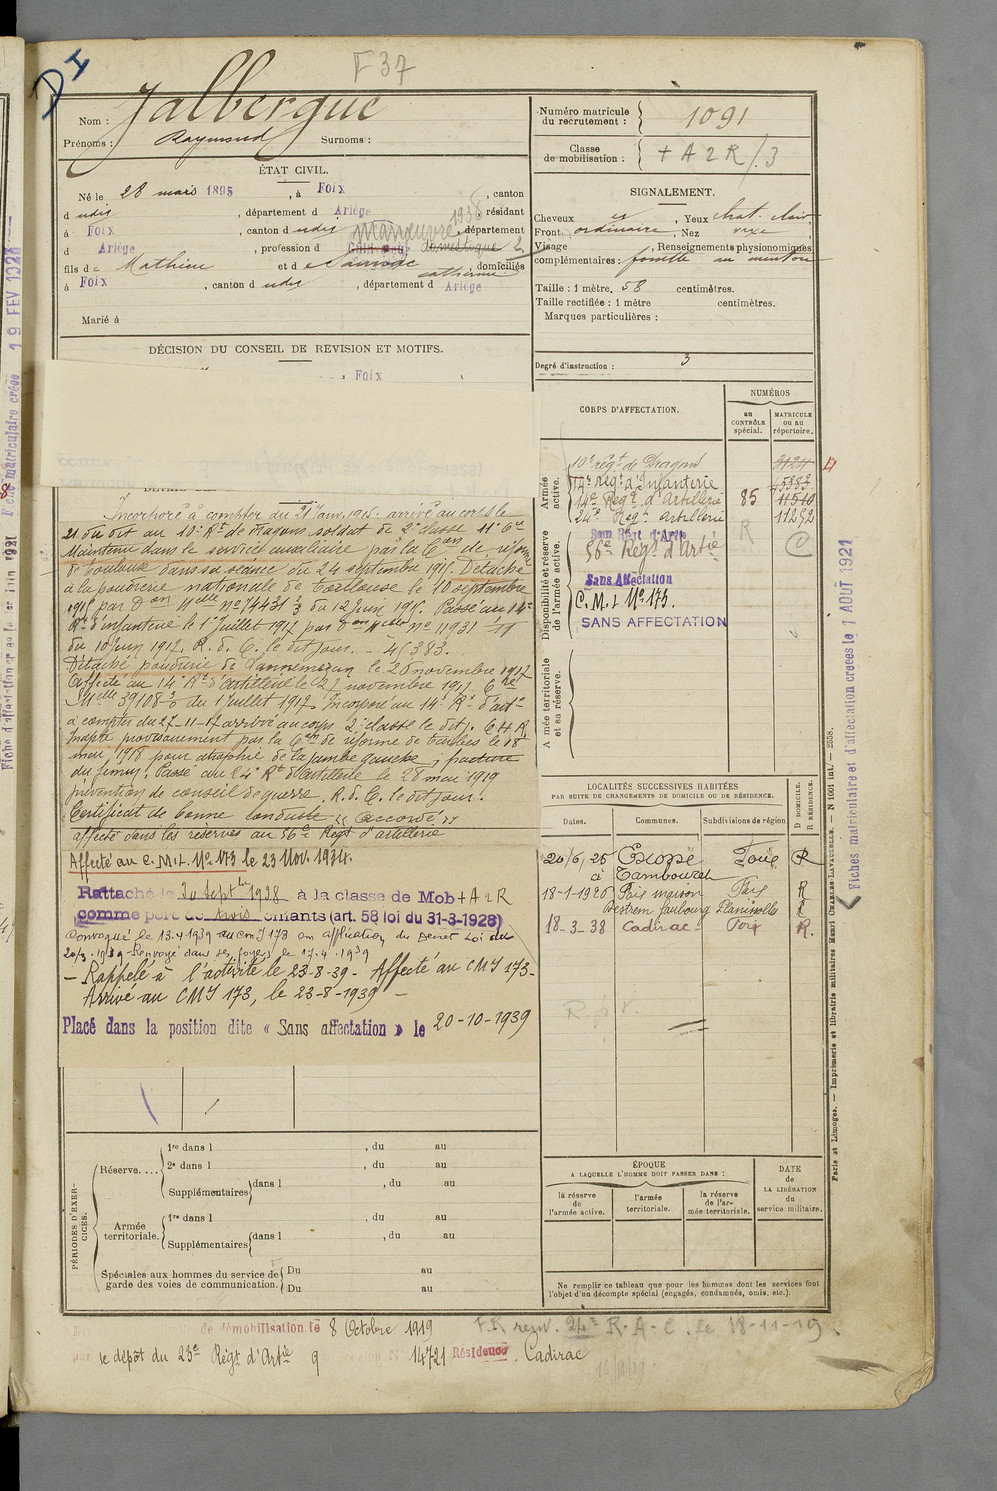 DI
F 37
Nom : Jalbergue
Prénoms : Raymond Surnoms :
Numéro matricule du recrutement : 1091
Classe de mobilisation : + A 2 R / 3
ÉTAT CIVIL.
Né le 28 mars 1895, à Foix, canton
d udis, département d Ariège 1938, résidant
à Foix, canton d udis Manœuvre, département
d Ariège, profession d domestique 2,
fils de Mathieu et de catherine, domiciliés
à Foix, canton d udis, département d Ariège
Marié à
SIGNALEMENT.
Cheveux, Yeux chat. clair
Front ordinaire, Nez vexe
Visage, Renseignements physionomiques
complémentaires : fossette au menton
Taille : 1 mètre, 58 centimètres.
Taille rectifiée : 1 mètre centimètres.
Marques particulières :
Degré d'instruction : 3
DÉCISION DU CONSEIL DE REVISION ET MOTIFS.
Foix
Incorporé à compter du 21 janv. 1915. arrivé au corps le
21 du dit au 10e Rt de dragons soldat de 2e classe 11e Cie
Maintenu dans le service auxiliaire par la Con de réforme
de Toulouse dans sa séance du 24 septembre 1915. Détaché
à la poudrerie nationale de Toulouse le 10 septembre
1915 par Don Melle No 74431 3/3 du 12 juin 1915. Passé au 14e
Rt d'infanterie le 1er Juillet 1917 par Don Melle no 11931
du 10 juin 1917. R. d. C. le dit jour. - 45383.
Détaché poudrerie de Lannemezan le 26 novembre 1917
Affecté au 14e Rt d'artillerie le 27 novembre 1917
Melle 39108 du 1er Juillet 1917. Incorporé au 14e Rt d'art.
à compter du 27-11-17 arrivé au corps 2e classe le dit j. C H R
Inapte provisoirement par la Con de réforme de Tarbes le 18
mai 1918 pour atrophie de la jambe gauche, fracture
du fémur. Passé au 24e Rt d'artillerie le 28 mai 1919
prévention de conseil de guerre. R. d. C. le dit jour.
Certificat de bonne conduite "Accordé"
affecté dans les réserves au 56e Régt d'artillerie
Affecté au C.M.I. No 173 le 23 Nov. 1934.
Rattaché le 30 Septbre 1938 à la classe de Mob + A 2 R
comme père de trois enfants (art. 58 loi du 31-3-1928)
Convoqué le 13.4.1939 au CMI 173 en application du Décret Loi du
20/3.1939 - Renvoyé dans ses foyers le 17.4.1939
- Rappelé à l'activité le 23-8-39 - Affecté au CMI 173 -
Arrivé au CMI 173, le 23-8-1939 -
Placé dans la position dite « Sans affectation » le 20-10-1939
CORPS D'AFFECTATION.
NUMÉROS
au CONTRÔLE spécial.
MATRICULE OU au répertoire.
Armée active.
10e régt de Dragons 3124
14e régt d'Infanterie 45383
14e Régt d'Artillerie 85 11510
24e Régt Artillerie 11252
Disponibilité et réserve de l'armée active.
56e Régt d'Artie R C
Sans Affectation
C.M.I No 173.
SANS AFFECTATION
Armée territoriale et sa réserve.
LOCALITÉS SUCCESSIVES HABITÉES
PAR SUITE DE CHANGEMENTS DE DOMICILE OU DE RÉSIDENCE.
Dates. Communes. Subdivisions de région D DOMICILE. R RÉSIDENCE.
20/6/25 Ecosse Foix R
à Tambouret
18-1-1926 Foix maison Foix R
Destrem faubourg Planissolles R
18-3-38 Cadirac Foix R.
ÉPOQUE
A LAQUELLE L'HOMME DOIT PASSER DANS :
la réserve de l'armée active.
l'armée territoriale.
la réserve de l'armée territoriale.
DATE de LA LIBÉRATION du service militaire.
Ne remplir ce tableau que pour les hommes dont les services font
l'objet d'un décompte spécial (engagés, condamnés, omis, etc.).
PÉRIODES D'EXERCICES.
Réserve.... 1re dans l , du au
2e dans l , du au
Supplémentaires dans l , du au
Armée territoriale. 1re dans l , du au
Supplémentaires dans l , du au
Spéciales aux hommes du service de garde des voies de communication. Du au
Du au
de démobilisation le 8 Octobre 1919
par le dépôt du 23e Régt d'Artie 9 No 14721 Résidence Cadirac
F.R renv. 24e R.A.C. le 18-11-19
Fiches matriculaire et d'affectation créées le 1 AOUT 1921
Paris et Limoges. — Imprimerie et librairie militaires Henri CHARLES-LAVAUZELLE. — N 1601 int. — 2558.
Fiche matriculaire créée 19 FEV 1921